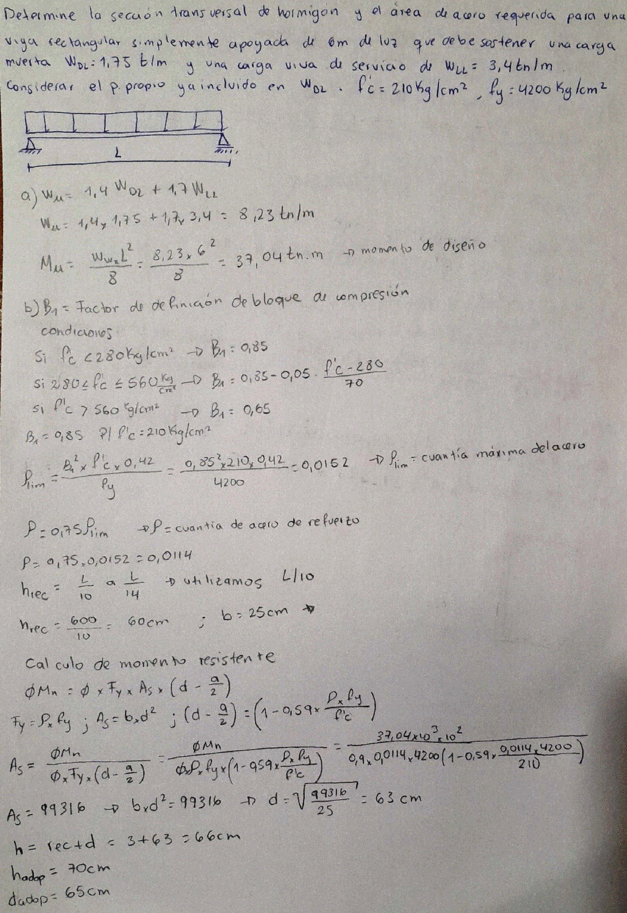 Determine la sección transversal de hormigon y el área de acero requerida para una
viga rectangular simplemente apoyada de 6m de luz que debe sostener una carga
muerta WDL=1,75 t/m y una carga viva de servicio de WLL = 3,4tn/m.
Considerar el p. propio ya incluido en WDL. f'c=210Kg/cm², fy=4200Kg/cm²
L
a) Wu= 1,4 WDL + 1,7 WLL
Wu= 1,4x1,75 + 1,7x 3,4 = 8,23 tn/m
Mu= Wu x L²/8 = 8,23x6²/8 = 37,04tn.m → momento de diseño
b) B1 = Factor de definición de bloque de compresión
condiciones
Si f'c < 280Kg/cm² → B1= 0,85
si 280 ≤ f'c ≤ 560 Kg/cm² → B1= 0,85 - 0,05 . f'c - 280/70
si f'c > 560 Kg/cm² → B1= 0,65
B1= 0,85 P/ f'c=210Kg/cm²
ρlim= B1² x f'c x 0,42/fy = 0,85²x210x0,42/4200 = 0,0152 → ρlim= cuantía máxima del acero
ρ= 0,75ρlim → ρ= cuantia de acero de refuerzo
ρ= 0,75x0,0152=0,0114
hrec= L/10 a L/14 → utilizamos L/10
hrec= 600/10 = 60cm ; b=25cm
Calculo de momento resistente
ØMn = Ø x Fy x As x (d - a/2)
Fy= ρxfy ; As= bxd² ; (d - a/2) = (1-0,59x ρxfy/f'c)
As= ØMn/ØxFyx(d-a/2) = ØMn/Øρxfyx(1-0,59x ρxfy/f'c) = 37,04x10³x10²/0,9x0,0114x4200(1-0,59x 0,0114x4200/210)
As= 99316 → bxd²= 99316 → d= √99316/25 = 63 cm
h = rec+d = 3+63 = 66cm
hadop = 70cm
dadop= 65cm